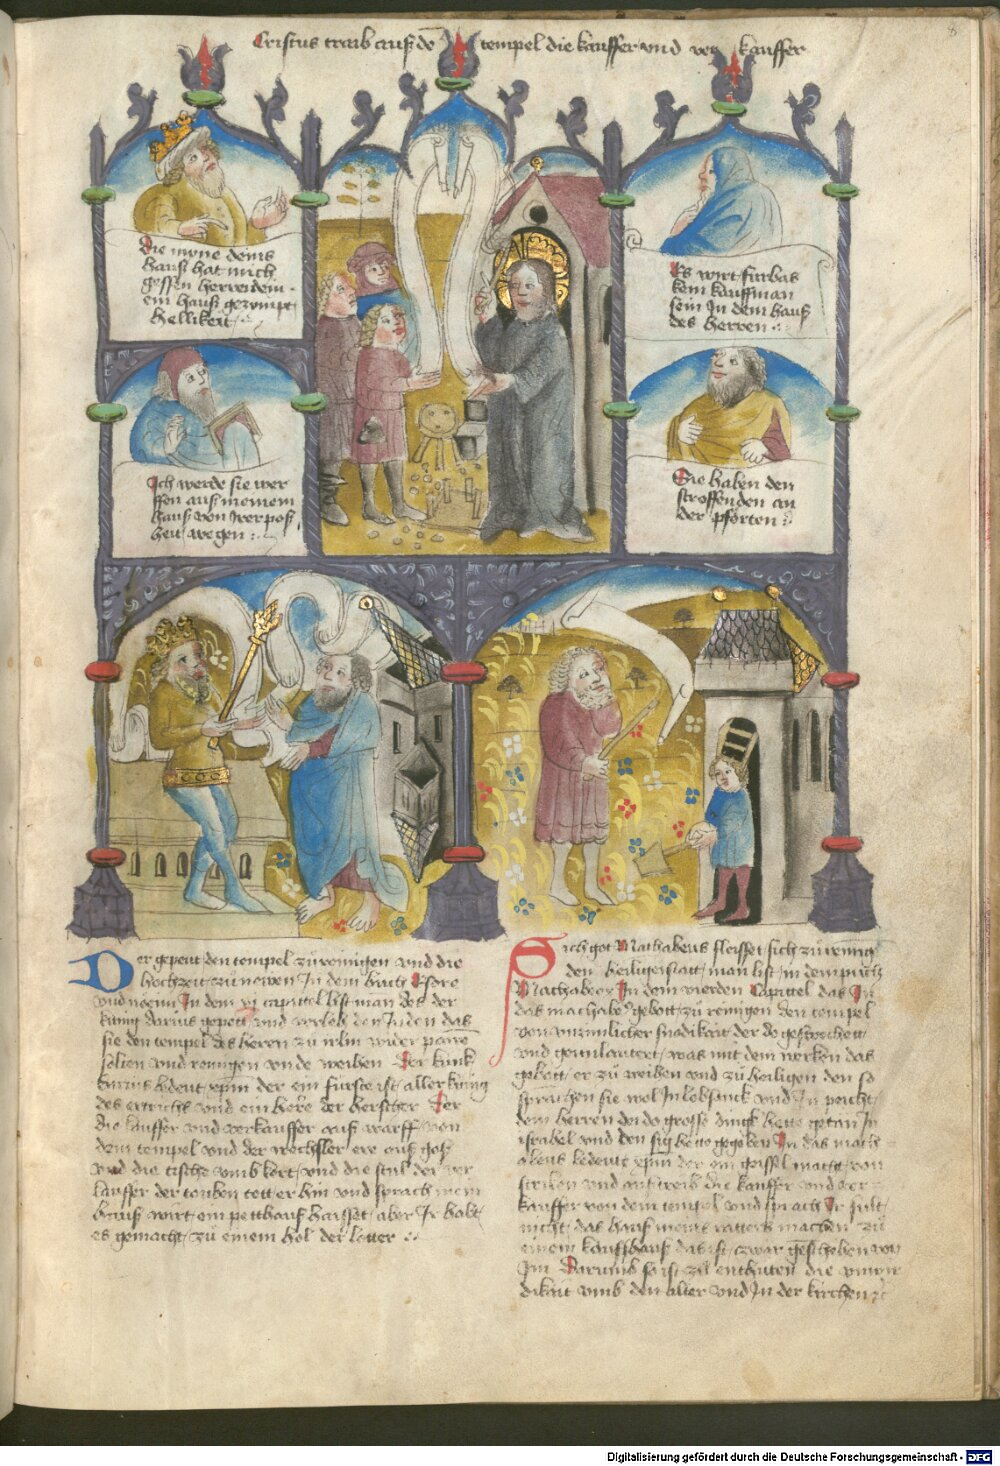 Cristus traib auß dē tempel die kauffer und ver kauffer
8
Die mÿne deins
hauß hat mich
gessen herre dem
ein hauß gezimpt
hellikeit
Es wirt furbas
kein kauffman
sein In dem hauß
des herren
Ich werde sie wer
ffen auß meinem
hauß von irer poß
heit wegen
Sie haben den
stroffenden an
der pforten
Der gepeut den tempel zů reinigen und die
hochzeit zů newen In dem bůch Esdre
und neemi In dem vj capittel list man des der
kunig darius gepott und den Juden das
sie den tempel des herren zů irlm wider
solten und reinigen unde weihen Der kunk
darius bedeut xp̄m der ein furste ist aller kunig
des ertrichs und ein here der herscher Der
die kauffer und verkauffer auß warff von
dem tempel und der wechsler ere
und die tische umb kert und die stul der ver
kauffer der touben tett er hin und sprach mein
hauß wirt ein petthauß haisset aber Ir habt
es gemacht zů einem hol der
Sich got Mathabeus fleisset sich zů reinig
den heiligen statt man list in dem půch
Machabeor In dem vierden Capittel das Ju
das machabe gebott zů reinigen den tempel
von unreinlicher der do
und was mit dem werken das
gebott er zů weihen und zů heiligen den so
sprachen sie wol In lobsanck und In peicht
dem herren der do grosse dingk hette getan In
israhel und den sig hette gegeben In das mach
abeus bedeutt xp̄m der ein geissel macht von
stricken und auß treib die kauffer und ver
kauffer von dem tempel und sprach Ir sult
nicht das hauß meins vatters machen zů
einem kauffhauß das ist zwar geschriben von
Im Darumb so ist zů die
umb den alter und In der kirchen
Digitalisierung gefördert durch die Deutsche Forschungsgemeinschaft - DFG